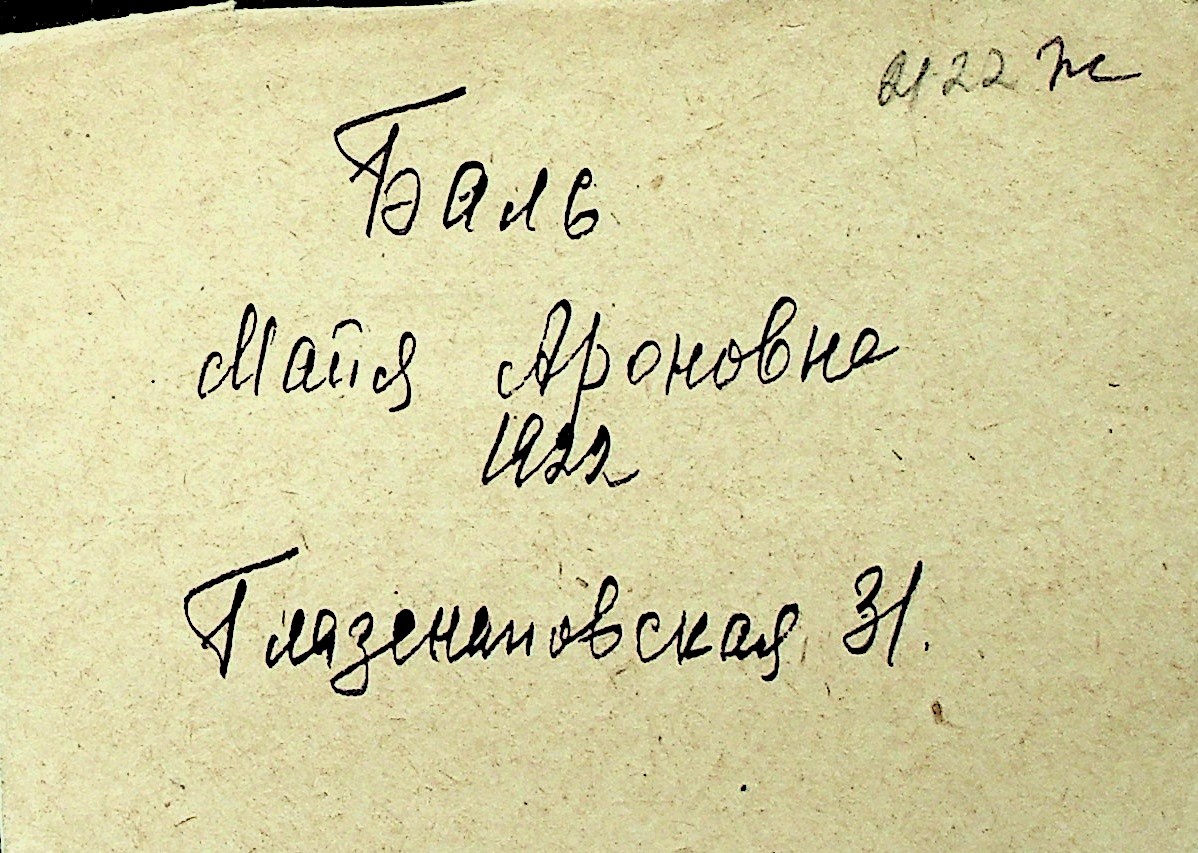 Баль
Майя Ароновна
1922
Глазенаповская 31.